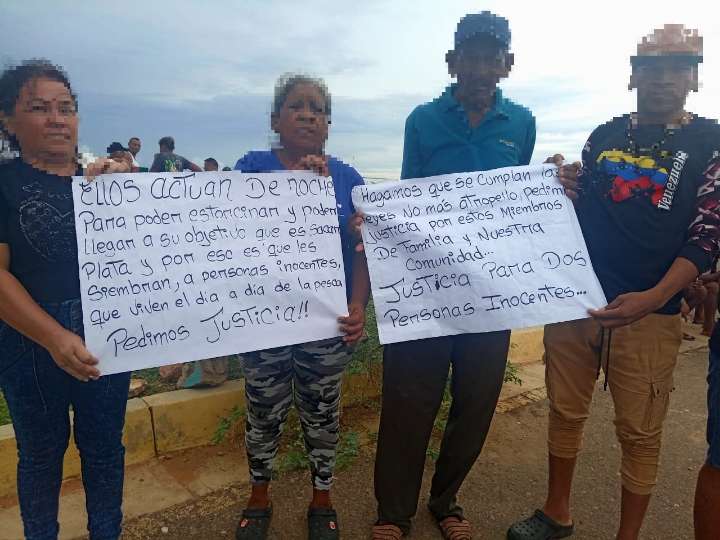 Ellos actuan De noche
Para poder estorcinar y poder
llegar a su objetivo que es sacar
Plata y por eso es que les
Siembran, a personas inocentes,
que viven el dia a dia de la pesca
Pedimos Justicia!!
Hagamos que se Cumplan las
leyes No más atropello, pedimos
Justicia por estos Miembros
De Familia y Nuestra
Comunidad...
Justicia Para Dos
Personas Inocentes...
Venezuela